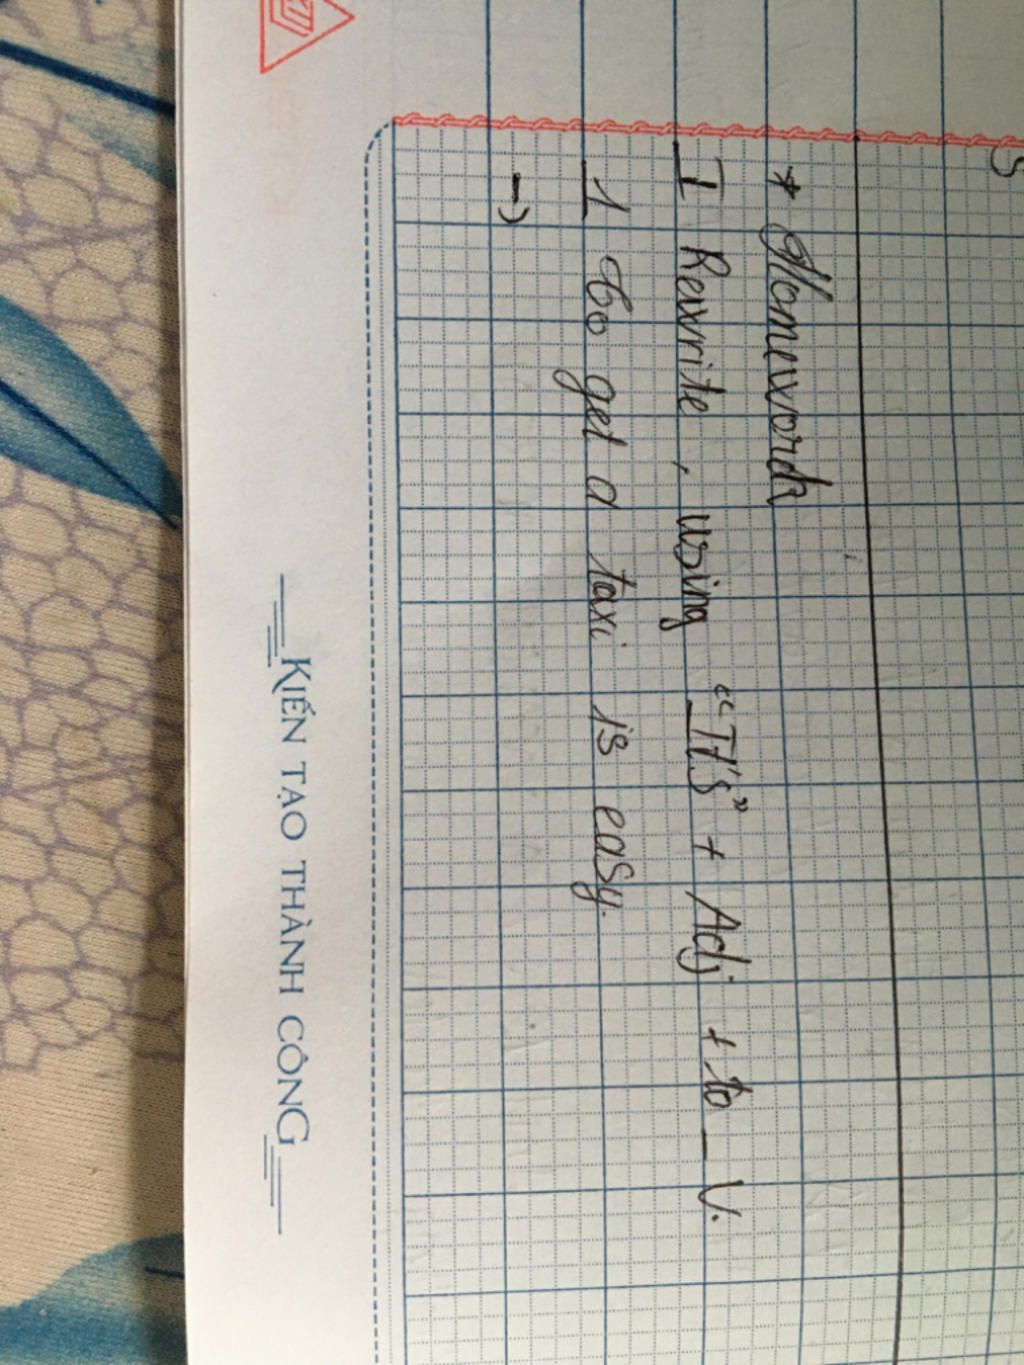 * Homework
I Rewrite, using "It's" + Adj + to _ V.
1 To get a taxi is easy.
→
KIẾN TẠO THÀNH CÔNG